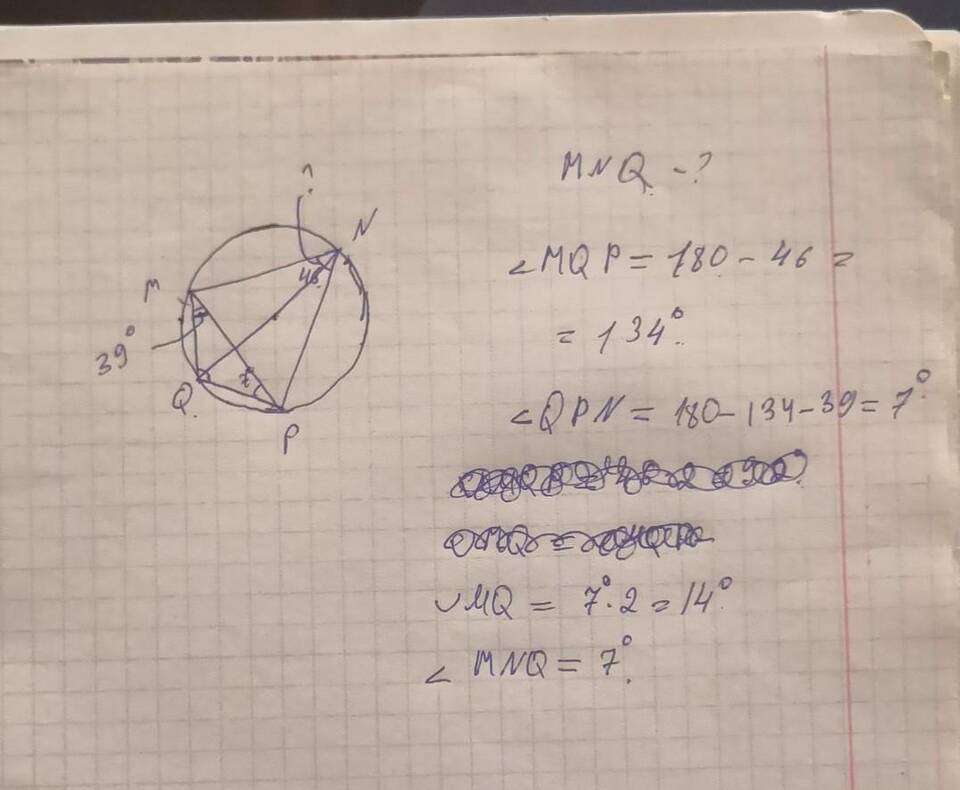 ?
N
46
M
39°
7°
Q
P
MNQ - ?
∠MQP = 180 - 46 =
= 134°.
∠QPN = 180 - 134 - 39 = 7°
◡MQ = 7°·2 = 14°
∠ MNQ = 7°.